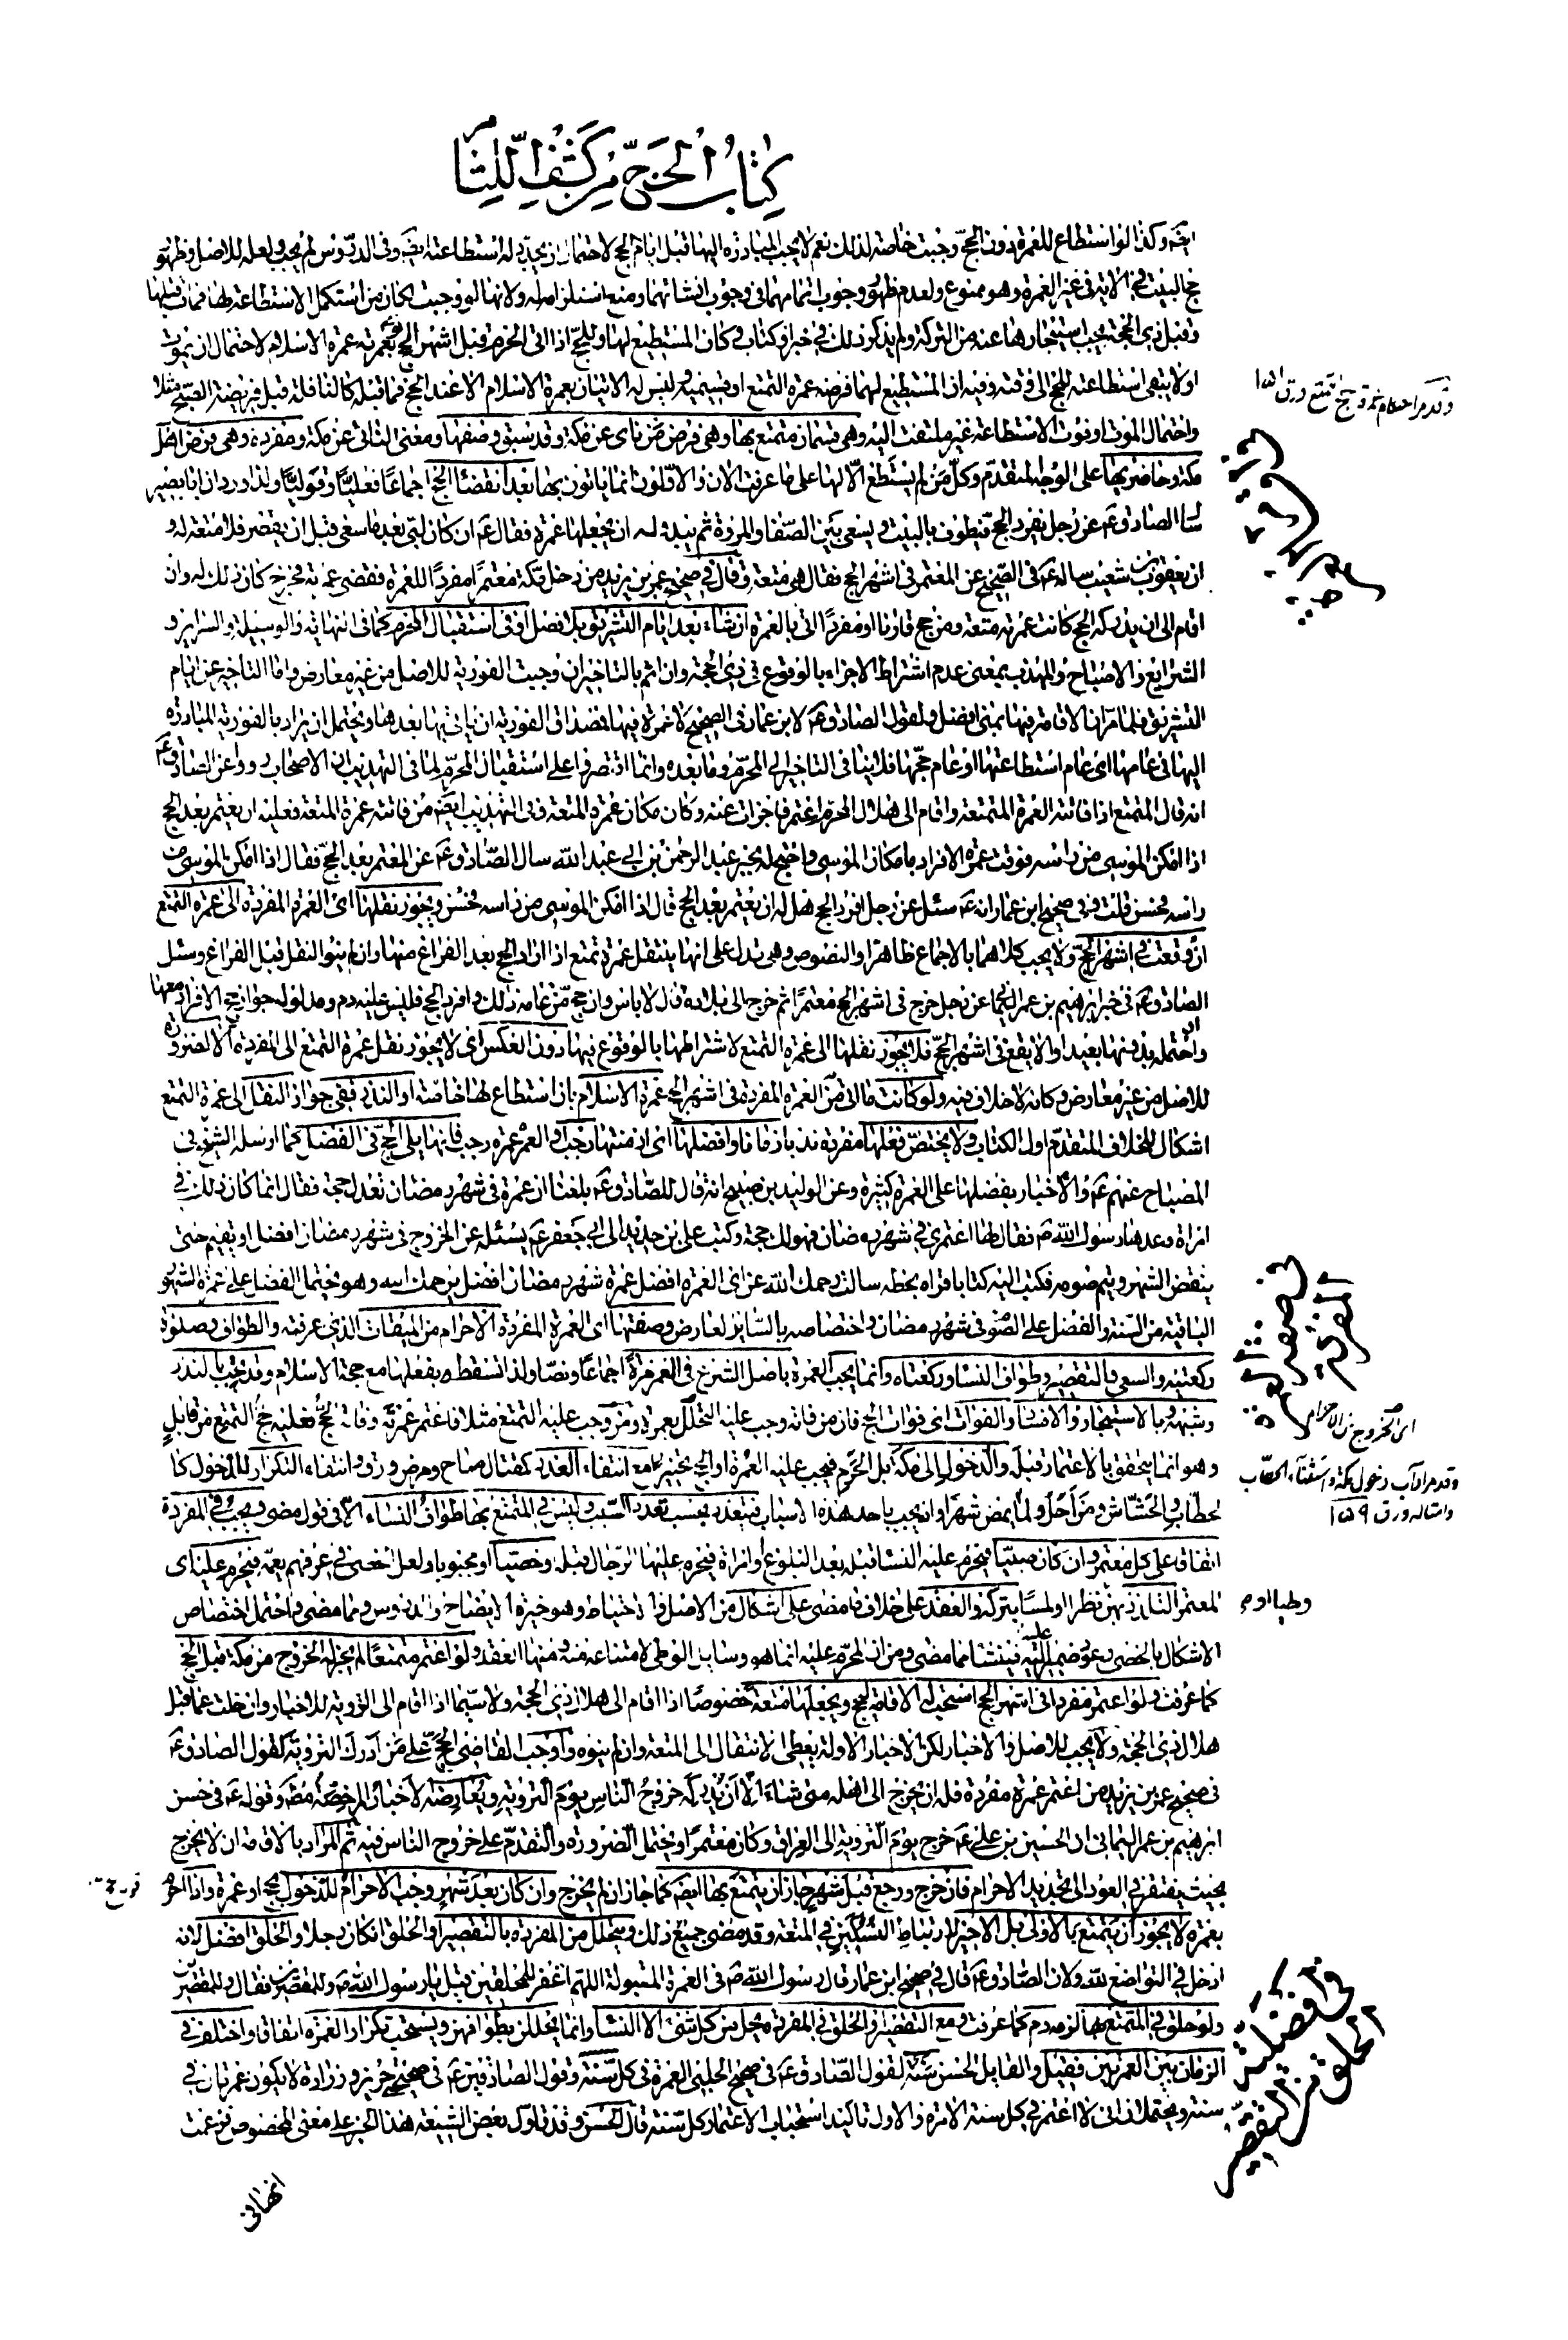 كتاب الحج من كشف اللثام
ايضا وكذا لو استطاع للعمرة دون الحج وجبت خاصة لذلك نعم لا يجب المبادرة اليها قبل ايام الحج لاحتمال ان يجدد له استطاعته ايضا وفي الدروس لم يجب ولعله للاصل وظهور
حج البيت في الاية في غير العمرة وهو ممنوع ولعدم ظهور وجوب اتمامهما في وجوب انشائهما ومنع استلزامه له ولانها لو وجبت لكان من استكمل الاستطاعة لها فمات قبلها
وقبل ذي الحجة يجب استيجارها عنه من التركة ولم يذكر ذلك في خبر او كتاب وكان المستطيع لها وللحج اذا اتى الحرم قبل اشهر الحج نوى بعمرته عمرة الاسلام لاحتمال ان يموت
او لا يبقى استطاعته للحج الى وقته وفيه ان المستطيع لهما فرضه عمرة التمتع او قسيميه وليس له الاتيان بعمرة الاسلام الا عند الحج فما قبله كالنافلة قبل فريضة الصبح مثلا
واحتمال الموت او فوت الاستطاعة غير ملتفت اليه وهي قسمان متمتع بها وهي فرض من نأى عن مكة وقد سبق وصفها ومعنى النائي عن مكة ومفردة وهي فرض اهل
مكة وحاضريها على الوجه المتقدم وكل من لم يستطع الا لها على ما عرفت الان والاولون انما ياتون بها بعد انقضاء الحج اجماعا فعليا وقوليا ولذا ورد ان ابا بصير
سأل الصادق ع عن رجل يفرد الحج فيطوف بالبيت ويسعى بين الصفا والمروة ثم يبدو له ان يجعلها عمرة فقال ع ان كان لبى بعد ما سعى قبل ان يقصر فلا متعة له و
ان يعقوب بن شعيب ساله ع في الصحيح عن المعتمر في اشهر الحج فقال هي متعة وقال في صحيح عمر بن يزيد من دخل مكة معتمرا مفردا للعمرة فقضى عمرته فخرج كان ذلك له وان
اقام الى ان يدركه الحج كانت عمرته متعة ومن حج قارنا او مفردا اتى بالعمرة ان شاء بعد ايام التشريق بل افضل او في استقبال المحرم كما في النهاية والوسيلة والسرائر و
الشرايع والاصباح والمهذب بمعنى عدم اشتراط الاجزاء بالوقوع في ذي الحجة وان اثم بالتاخير ان وجبت الفورية للاصل من غير معارض واما التاخير عن ايام
التشريق فلما مر ان الاقامة فيها بمنى افضل ولقول الصادق ع لابن عمار في الصحيح لا عمرة فيها فصدق الفورية ان ياتي بها بعدها ويحتمل ان يراد بالفورية المبادرة
اليها في عامها اي عام استطاعتها او عام حجها فلا ينافي التاخير الى المحرم وما بعده وانما اقتصروا على استقبال المحرم لما في التهذيب ان الاصحاب رووا عن الصادق ع
انه قال المتمتع اذا فاتته العمرة المتمتعة واقام الى هلال المحرم اعتمر فاجزأت عنه وكان مكان عمرة المتعة وفي التهذيب ايضا من فاتته عمرة المتعة فعليه ان يعتمر بعد الحج
اذا امكن الموسى من راسه فوقت عمرة الافراد بامكان الموسى واحتج له بخبر عبد الرحمن بن ابي عبد الله سال الصادق ع عن المعتمر بعد الحج فقال اذا امكن الموسى من
راسه فحسن قلت وفي صحيح ابن عمار انه ع سئل عن رجل افرد الحج هل له ان يعتمر بعد الحج قال اذا امكن الموسى من راسه فحسن ويجوز نقلها اي العمرة المفردة الى عمرة التمتع
ان وقعت في اشهر الحج ولا يجب كلاهما بالاجماع ظاهرا والنصوص وهي تدل على انها ينتقل عمرة تمتع اذا اراد الحج بعد الفراغ منها وان لم ينو النقل قبل الفراغ وسئل
الصادق ع في خبر ابرهيم بن عمر اليماني عن رجل خرج في اشهر الحج معتمرا ثم خرج الى بلاده قال لا باس وان حج من عامه ذلك وافرد الحج فليس عليه دم ومدلوله جواز حج الافراد معها
واحتمله بدونها بعيد او ان لا يقع في اشهر الحج فلا يجوز نقلها الى عمرة التمتع لاشتراطها بالوقوع فيها دون العكس اي لا يجوز نقل عمرة التمتع الى المفردة الا لضرورة
للاصل من غير معارض وكانه لا خلاف فيه ولو كانت ما اتى من العمرة المفردة في اشهر الحج عمرة الاسلام بان استطاع لها خاصة او النذر ففي جواز النقل الى عمرة التمتع
اشكال للخلاف المتقدم اول الكتاب ولا يختص فعلها مفردة ندبا زمانا وافضلها اي ازمنتها رجب والعمرة عمرة رجب فانها يلي الحج في الفضل كما ارسله الشيخ في
المصباح عنهم ع والاخبار بفضلها على العمرة كثيرة وعن الوليد بن صبيح انه قال للصادق ع بلغنا ان عمرة في شهر رمضان تعدل حجة فقال انما كان ذلك في
امراة وعدها رسول الله ص فقال لها اعتمري في شهر رمضان فهو لك حجة وكتب علي بن حديد الى ابي جعفر ع يسئله عن الخروج في شهر رمضان افضل او يقيم حتى
ينقضي الشهر ويتم صومه فكتب اليه كتابا قراه بخطه سالت رحمك الله عن اي العمرة افضل عمرة شهر رمضان افضل يرحمك الله وهو يحتمل الفضل على عمرة الشهور
الباقية من السنة والفضل على الصوم في شهر رمضان واختصاصه بالسائل لعارض وصفتها اي العمرة المفردة الاحرام من الميقات الذي عرفته والطواف وصلوة
ركعتيه والسعي والتقصير وطواف النساء وركعتاه وانما يجب العمرة باصل الشرع في العمر مرة اجماعا ونصا ولذا تسقط بفعلها مع حجة الاسلام وقد يجب بالنذر
وشبهه وبالاستيجار والافساد والفوات اي فوات الحج فان من فاته وجب عليه التحلل بعمرة ومن وجب عليه التمتع مثلا فاعتمر عمرته وفاته الحج فعليه حج التمتع من قابل
وهو انما يتحقق بالاعتمار قبله والدخول الى مكة بل الحرم فيجب عليه العمرة او الحج تخييرا مع انتفاء العذر كقتال مباح ومرض ورق وانتفاء التكرار للدخول كا
لحطاب والحشاش ومن احل ولما يمض شهر وانما يجب باحد هذه الاسباب فيتعدد بحسب تعدد السبب وليس في المتمتع بها طواف النساء الا في قول مضى ويجب في المفردة
اتفاقا على كل معتمر وان كان صبيا فيحرم عليه النساء قبله بعد البلوغ او امراة فيحرم عليها الرجال قبله وخصيا او مجبوبا ولعل الخصي في عرفهم يعمه فيحرم عليه اي
المعتمر التلذذ بهن نظرا او لمسا بتركه والعقد على خلاف ما مضى على اشكال من الاصل والاحتياط وهو خيرة الايضاح والدروس ومما مضى واحتمل اختصاص
الاشكال بالخصي وعود ضمير عليه اليه فينشا مما مضى ومن ان المحرم عليه انما هو وسايل الوطي لامتناعه منه ومنها العقد ولو اعتمر متمتعا لم يجز له الخروج من مكة قبل الحج
كما عرفت ولو اعتمر مفردا في اشهر الحج استحب له الاقامة ليحج ويجعلها متعة خصوصا اذا اقام الى هلال ذي الحجة ولا سيما اذا اقام الى التروية للاخبار وان خلت عما قبل
هلال ذي الحجة ولا يجب للاصل والاخبار لكن الاخبار الاولة يعطي الانتقال الى المتعة وان لم ينوه واوجب القاضي الحج على من ادرك التروية لقول الصادق ع
في صحيح عمر بن يزيد من اعتمر عمرة مفردة فله ان يخرج الى اهله متى شاء الا ان يدركه خروج الناس يوم التروية ويعارضه الاخبار المرخصة مضت وقوله ع في حسن
ابرهيم بن عمر اليماني ان الحسين بن علي ع خرج يوم التروية الى العراق وكان معتمرا ويحتمل الضرورة والتقدم على خروج الناس فيه ثم المراد بالاقامة ان لا يخرج
بحيث يفتقر في العود الى تجديد الاحرام فان خرج ورجع قبل شهر جاز ان يتمتع بها ايضا كما جاز ان لم يخرج وان كان بعد شهر وجب الاحرام للدخول بحج او عمرة واذا احرم
بعمرة لا يجوز ان يتمتع بالاولى بل الاخيرة لارتباط النسكين في المتعة وقد مضى جميع ذلك ويتحلل من المفردة بالتقصير او الحلق ان كان رجلا والحلق افضل لانه
ادخل في التواضع لله ولان الصادق ع قال في صحيح ابن عمار قال رسول الله ص في العمرة المقبولة اللهم اغفر للمحلقين قيل يا رسول الله ص وللمقصرين فقال وللمقصرين
ولو حلق في المتمتع بها لزمه دم كما عرفت ومع التقصير او الحلق في المفردة يحل من كل شيء الا النساء وانما يحللن بطوافهن ويستحب تكرار العمرة اتفاقا واختلف في
الزمان بين العمرتين فقيل والقايل الحسن سنة لقول الصادق ع في صحيح الحلبي العمرة في كل سنة وقول الصادقين ع في صحيح حريز وزرارة لا يكون عمرتان في
سنة ويحتملان اني لا اعتمر في كل سنة الا مرة والاول تاكيد استحباب الاعتمار كل سنة قال الحسن وقد تاول بعض الشيعة هذا الخبر على معنى الخصوص فزعمت
انها في
وقد مر احكام عمرة حج التمتع ورق ١٥١
اي الخروج من الاحرام
وقد مر اداب دخول مكة واستثناء الحطاب
وامثاله ورق ١٥٩
وطيا او
في افضلية
الحلق من التقصير